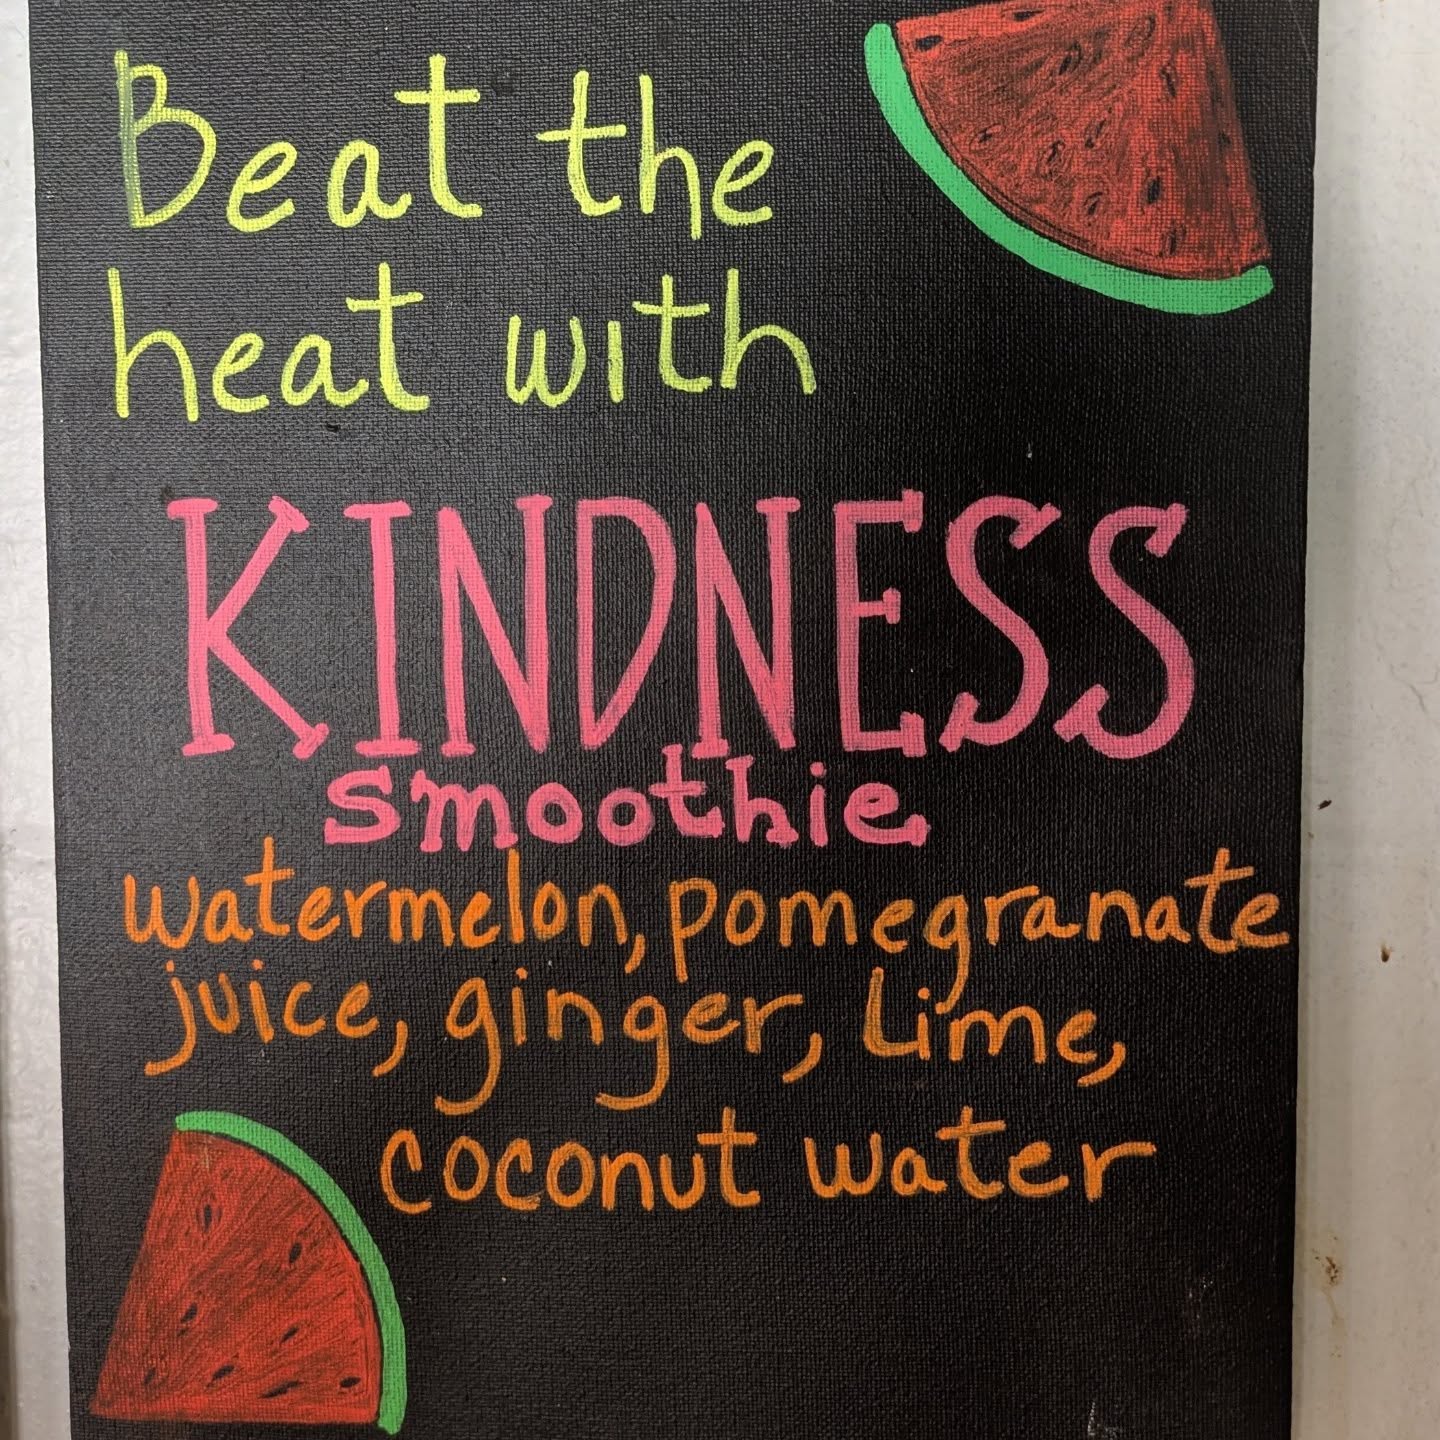 Beat the
heat with
KINDNESS
smoothie
watermelon, pomegranate
juice, ginger, Lime,
coconut water